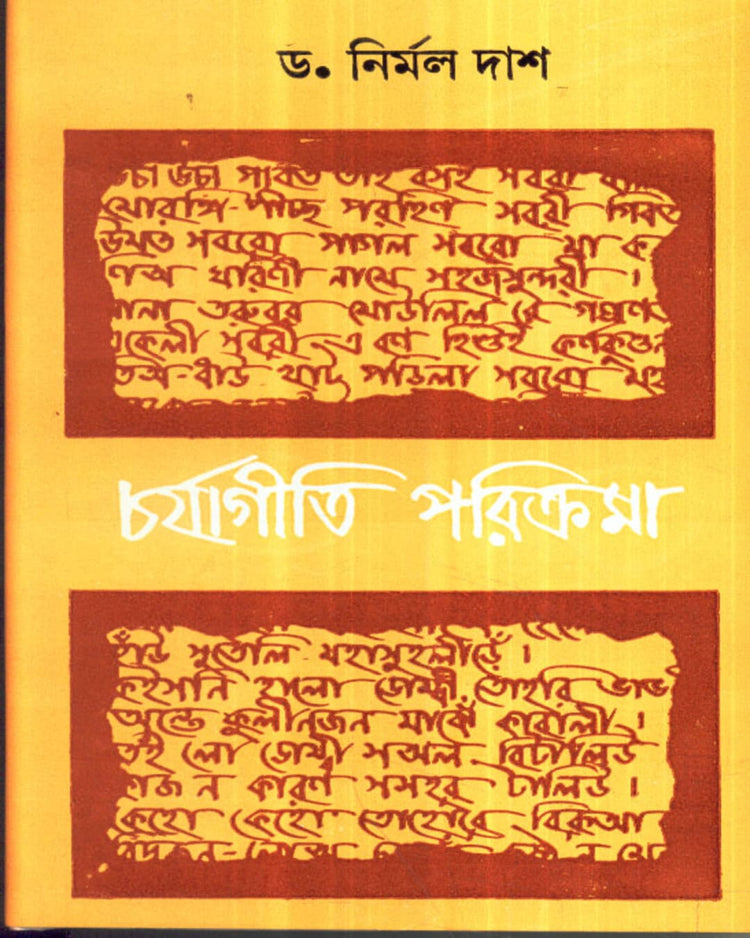 ড. নির্মল দাশ
উচা পাবত তহি বসই সবরী
মোরঙ্গি-পীচ্ছ পরহিণ সবরী গিবত
উমত সবরো পাগল সবরো মা ক
ণিঅ ঘরিণী নামে সহজসুন্দরী ।
তরুবর মোউলিল রে গঅণ
সবরী এ বণ হিণ্ডই কর্ণকুণ্ডল
তিঅ-ধাউ খাট পড়িলা সবরো মহ
চর্যাগীতি পরিক্রমা
হাঁউ সুতেলি মহাসুহলীড়েঁ ।
কইসনি হালো ডোম্বী তোহরি ভাভ
অন্তে কুলীনজন মাঝেঁ কাবালী ।
তঁই লো ডোম্বী সঅল বিটালিউ
কাজ ন কারণ সসহর টালিউ ।
কেহো কেহো তোহোরে বিরুআ